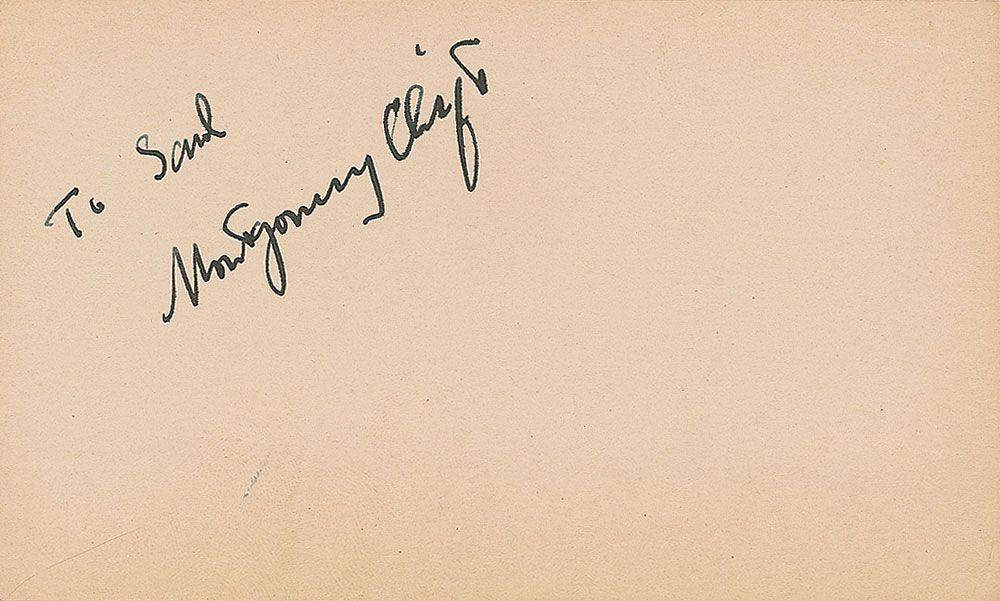 To Saul
Montgomery Clift